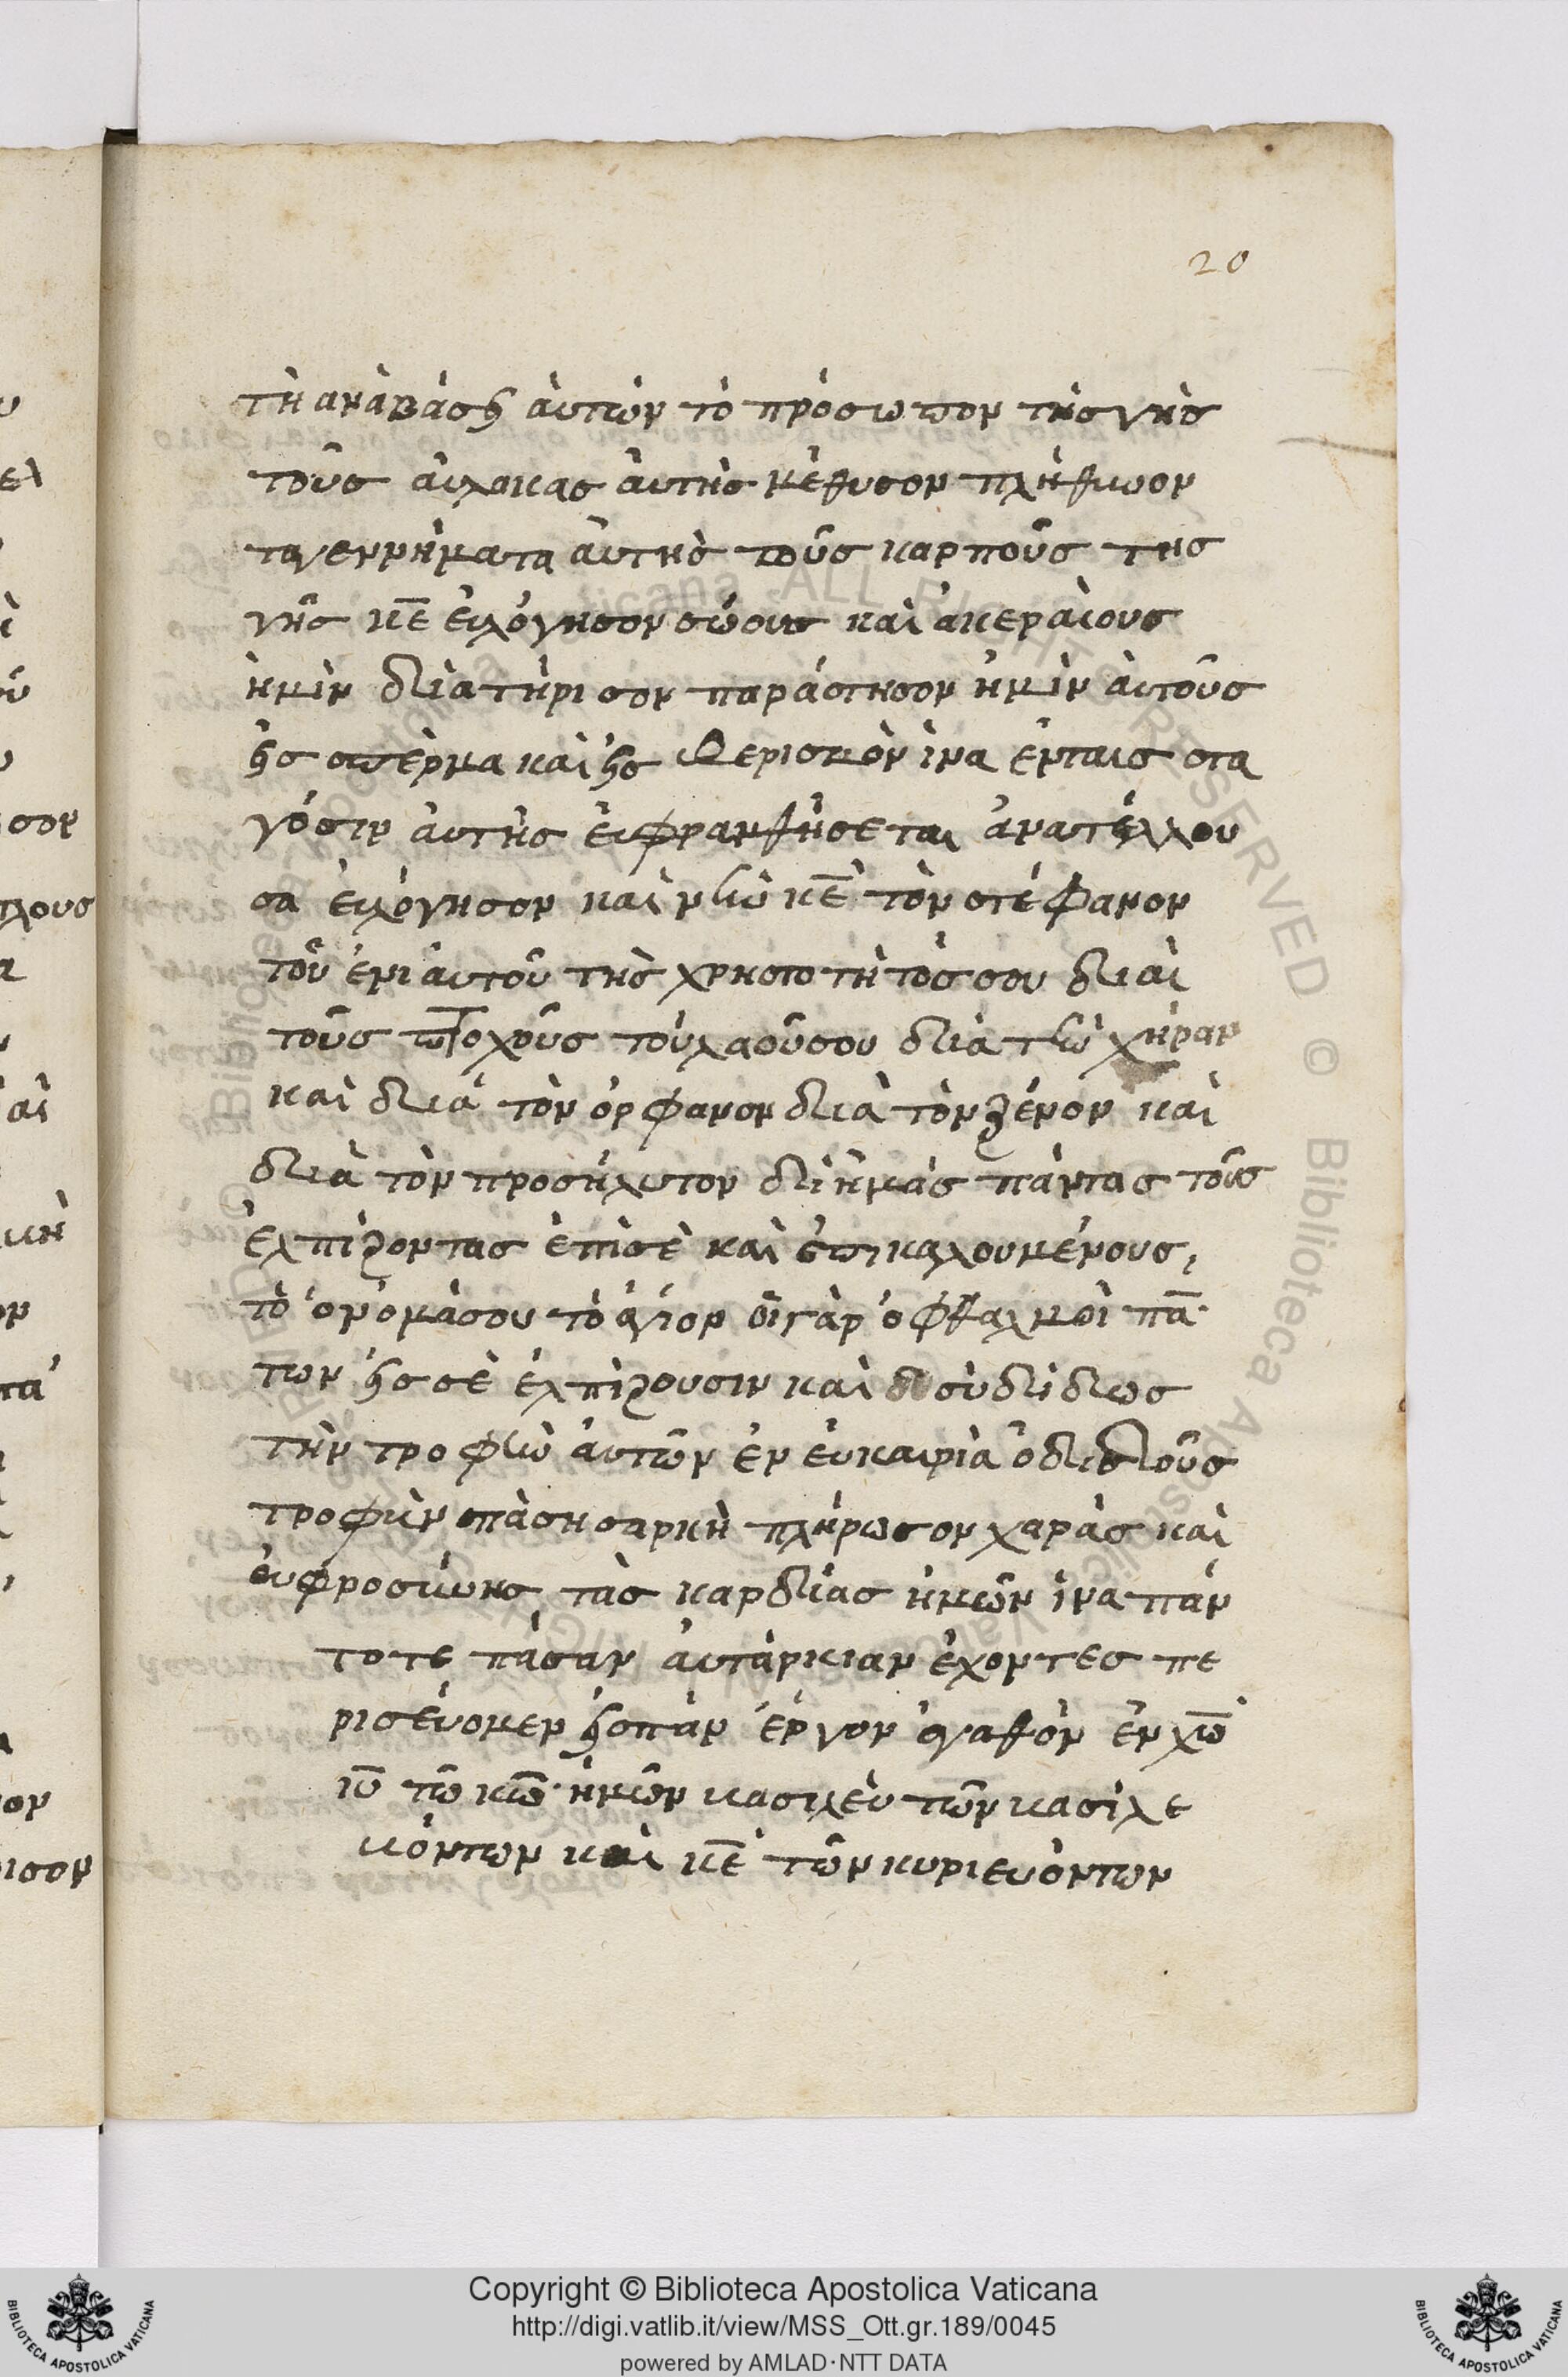 20
τὴ ανὰβάσει ἀυτών τὸ πρόσωπον τὴσ γὴσ
τοῦσ ἀυλακασ ἀυτὴσ μέθυσον πλήθυνον
τα γεννήματα ἀυτὴσ τοῦσ καρποῦσ τησ
γῆσ κε̅ ἐυλόγησον σώουσ καὶ ἀκεραὶουσ
ἡμὶν δϊατὴρισον παράστησον ἡμὶν ἀυτοῦσ
εἰσ σπὲρμα καὶ εἰσ θερισμὸν ἱνα ἐνταισ στα
γόσιν ἀυτῆσ ἐυφρανθήσεται ἀνατέλλου
σα ἐυλόγησον καὶ νῦν κε̅ τὸν στέφανον
τοῦ ἐνιἀυτοῦ τὴσ χρηστοτὴτόσ σου διαὶ
τοῦσ πτοχοῦσ τοὺλαοῦσου διὰ τὴν χήραν
καὶ διά τὸν ὀρφανον διὰ τὸν ξένον καὶ
διὰ τὸν προσήλυτον δὶ ἡμάσ πάντασ τοῦσ
ἐλπὶζοντασ ἐπὶσὲ καὶ ἐπικαλουμένουσ,
τὸ ὀνομὰσου τὸ ἁγίον ὁι γὰρ ὀφθαλμοὶ πα̅
των εἰσ σὲ ἐλπὶζουσιν καὶ σὺ δίδιωσ
τὴν τροφὴν ἀυτῶν ἐν ἐυκαιρὶα ὁ διδιοῦσ
τροφὴν πὰση σαρκὴ πλήρωσον χαρὰσ καὶ
ἐυφροσύνησ τὰσ καρδίασ ἡμῶν ἱνα πάν
τοτε πάσαν ἀυτὰρκιαν ἐχοντεσ πε
ρισέυομεν εἰσπάν ἐργον ἀγαθόν ἐν χω̅
ιυ̅ τῶ κω̅ ἡμῶν βασιλὲυ τῶν βασίλε
βόντων καὶ κε̅ τῶν κυριευόντων
υ
ελ
σον
πλουσ
αὶ
κὴ
ον
πα
ον
ισον
Copyright © Biblioteca Apostolica Vaticana
http://digi.vatlib.it/view/MSS_Ott.gr.189/0045
powered by AMLAD·NTT DATA
BIBLIOTECA APOSTOLICA VATICANA
BIBLIOTECA APOSTOLICA VATICANA